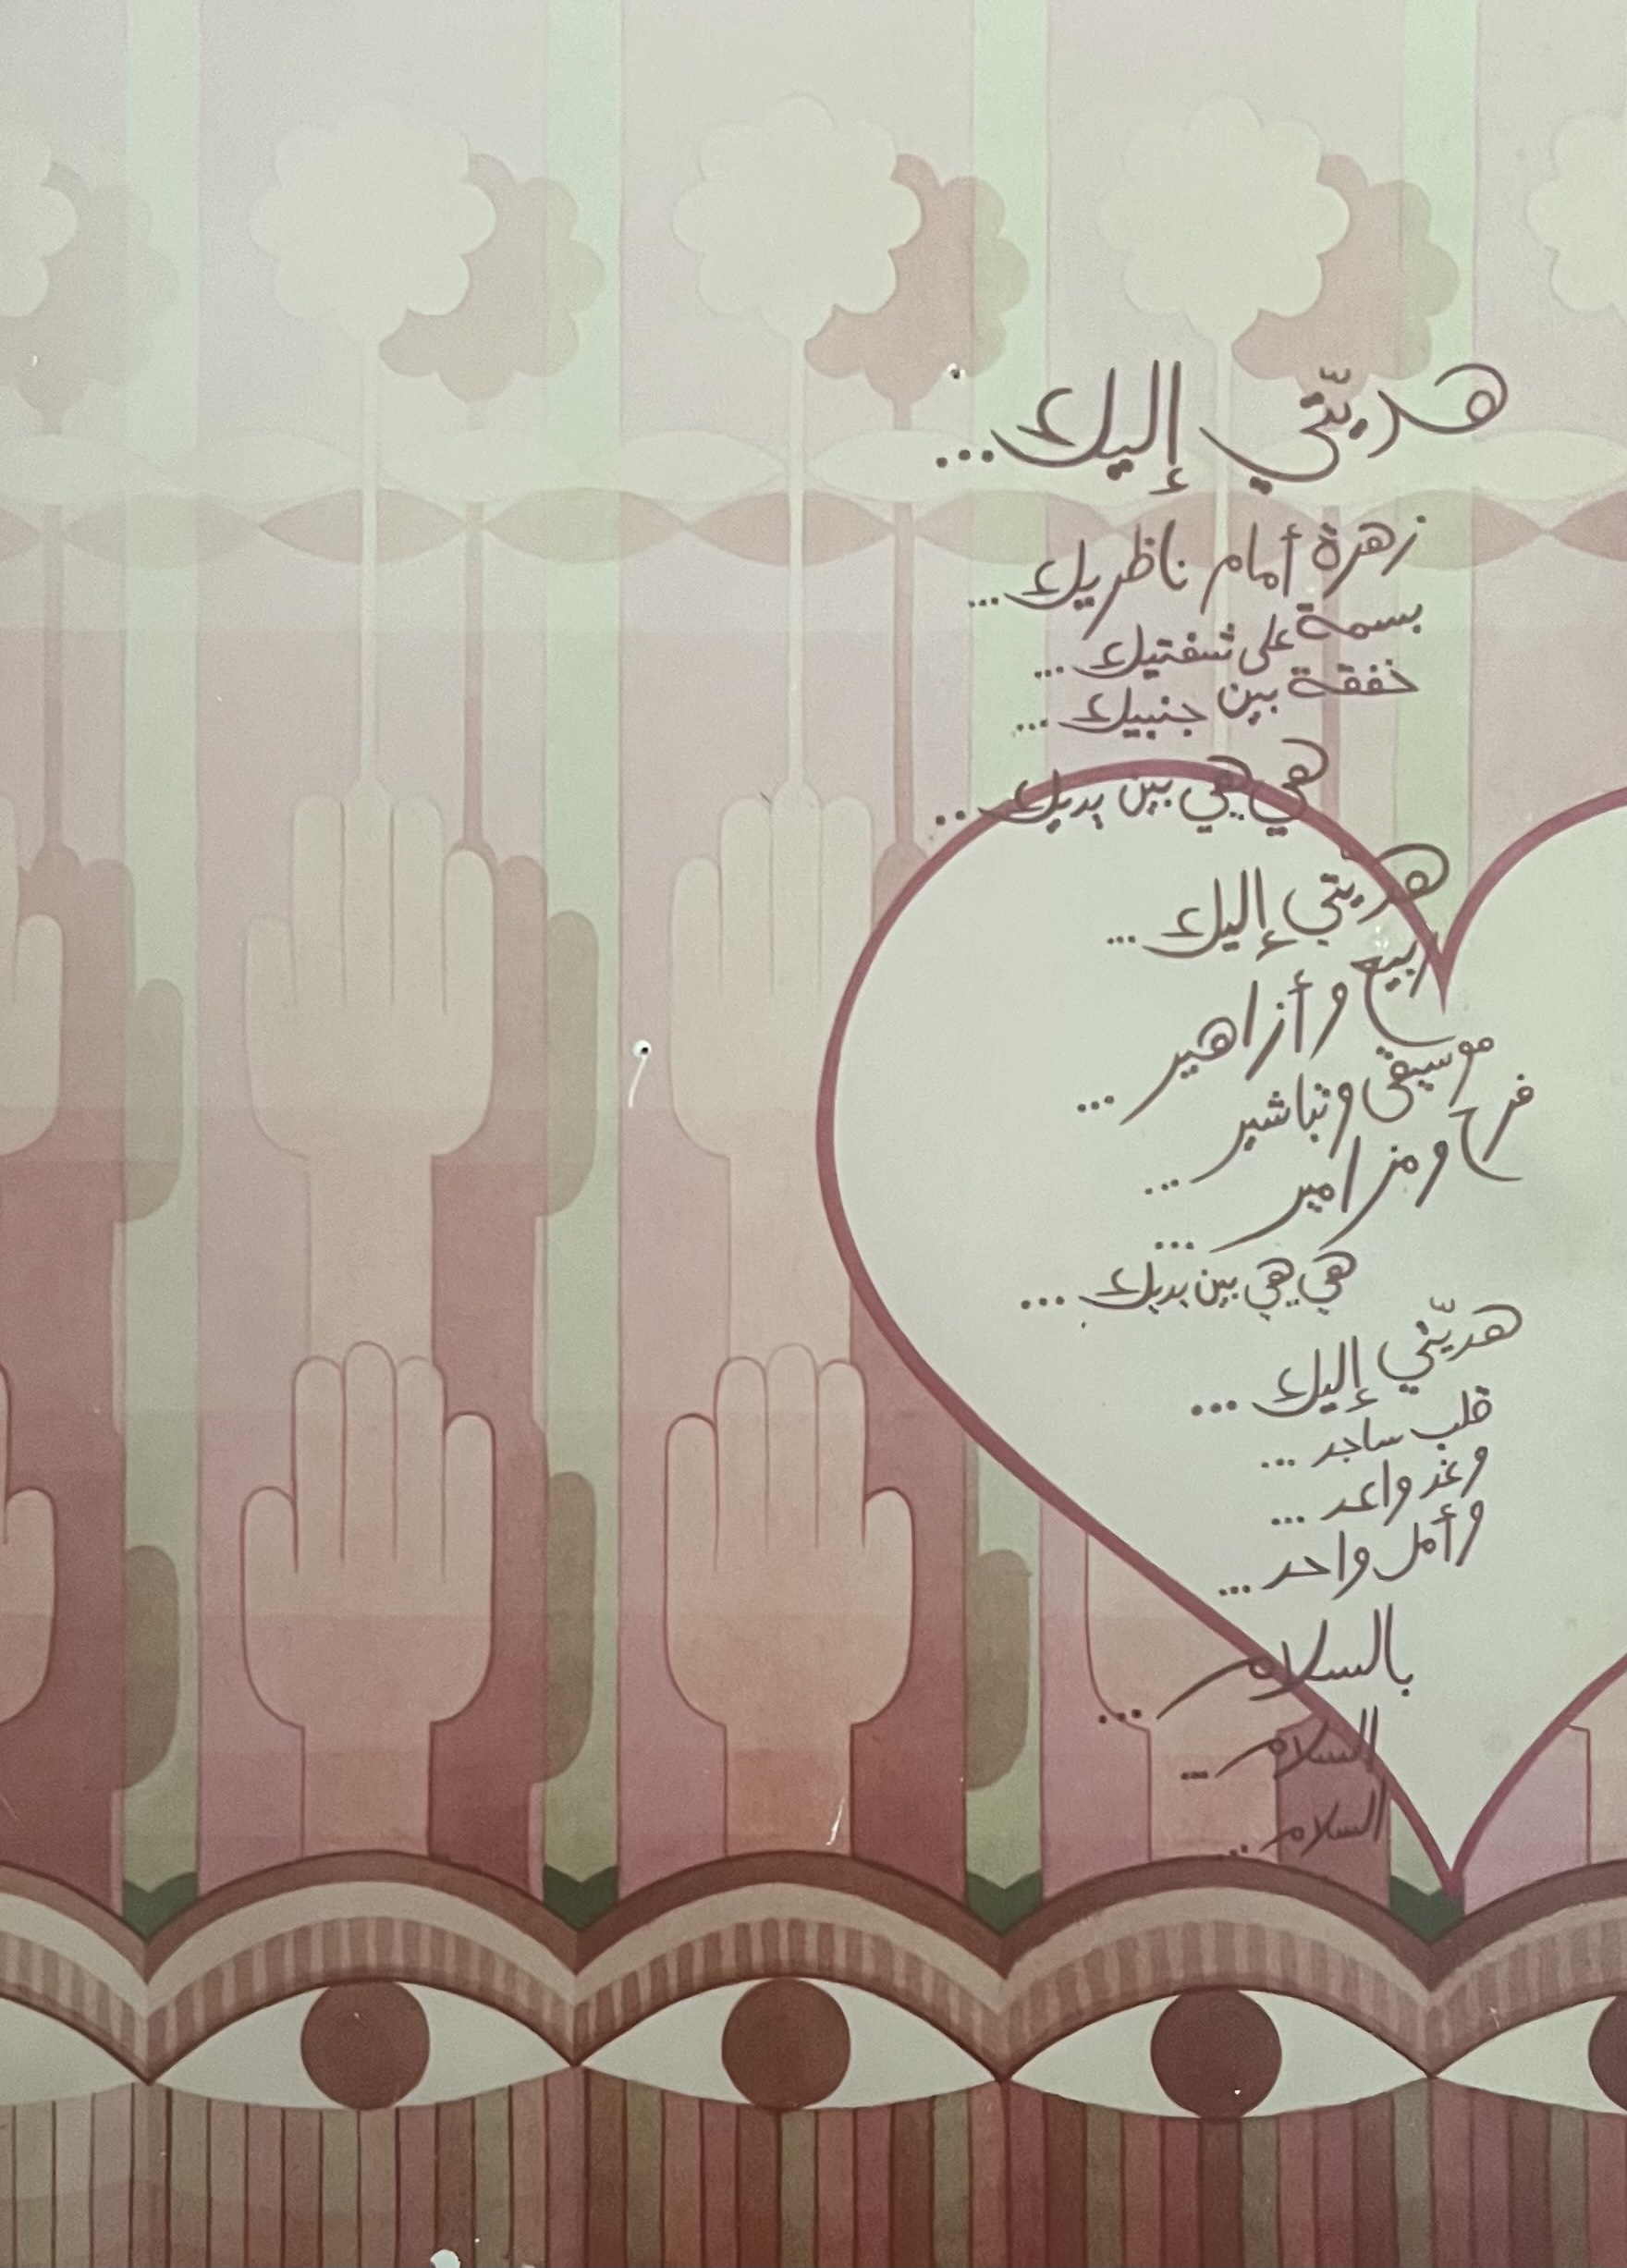 هديّتي إليك...
زهرة أمام ناظريك...
بسمة على شفتيك...
خفقة بين جنبيك...
هي هي بين يديك...
هديّتي إليك...
ربيع وأزاهير...
موسيقى وتباشير...
فرح ومزامير...
هي هي بين يديك...
هديّتي إليك...
قلب ساجد...
وغد واعد...
وأمل واحد...
بالسلام...
السلام...
السلام...